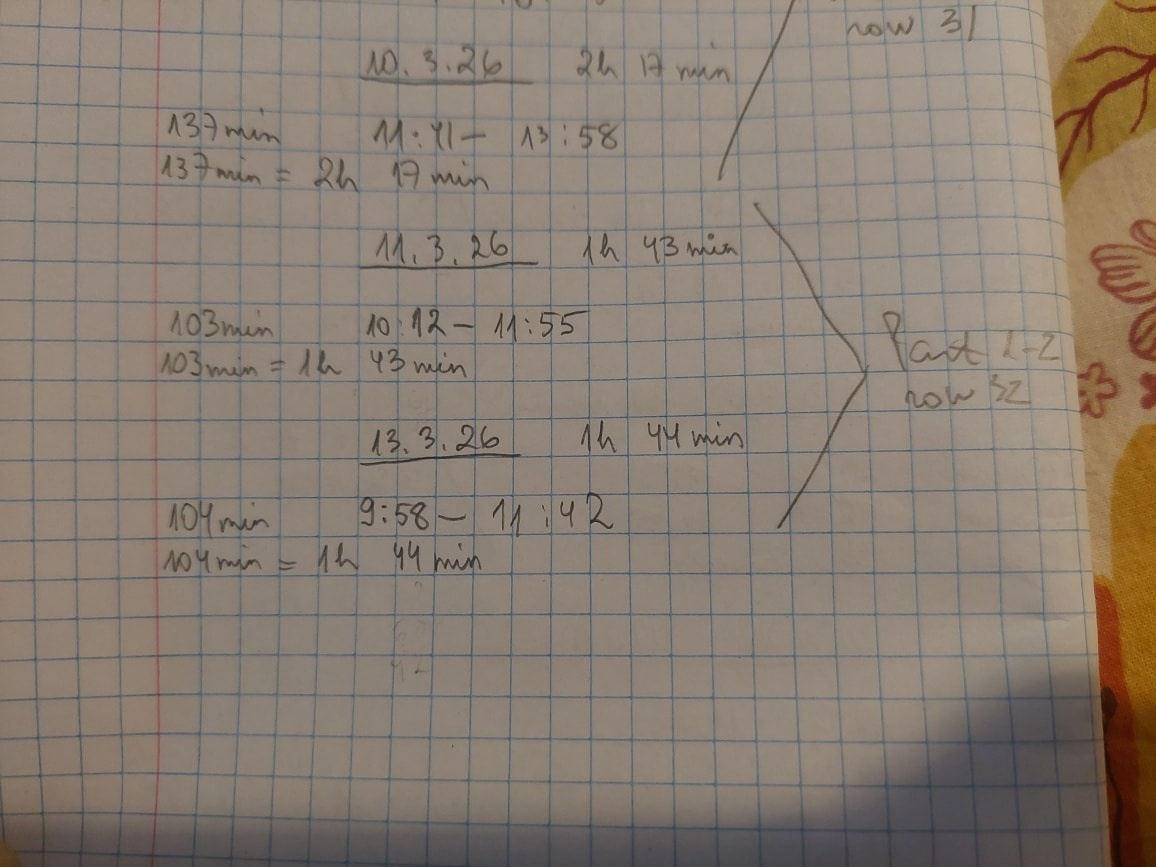 row 31
10.3.26 2h 17 min
137min 11:41 – 13:58
137min = 2h 17min
11.3.26 1h 43min
103min 10:12 – 11:55
103min = 1h 43min
Part 1-2
row 32
13.3.26 1h 44min
104min 9:58 – 11:42
104min = 1h 44min